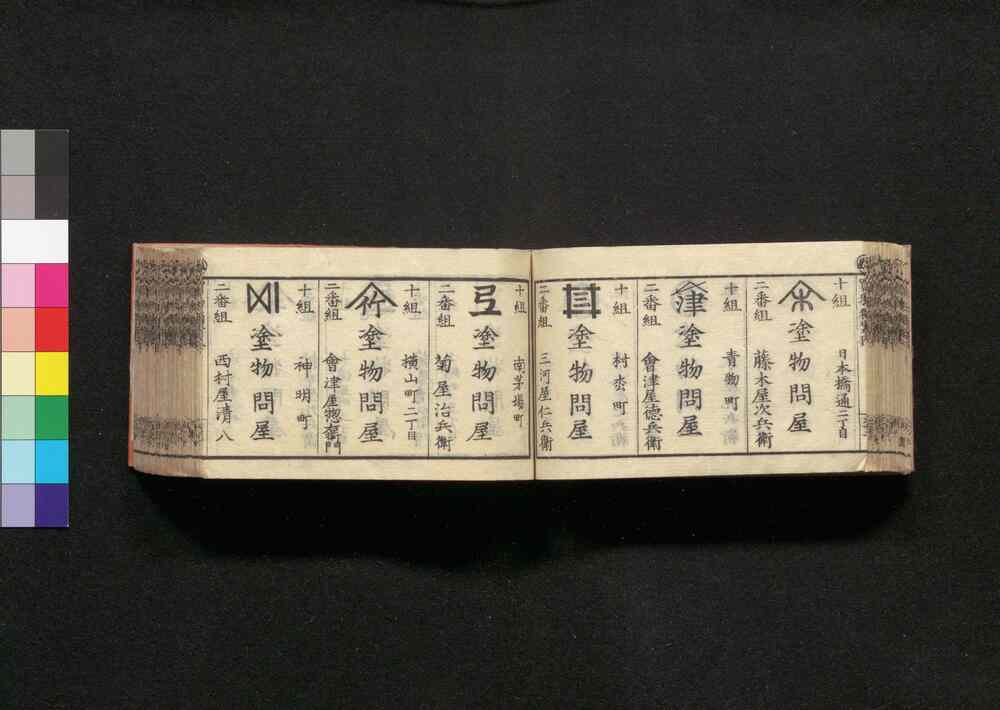 十組
日本橋通二丁目
木
塗物問屋
二番組
藤木屋次兵衛
十組
青物町
津
塗物問屋
二番組
會津屋徳兵衛
十組
村松町
塗物問屋
二番組
三河屋仁兵衛
十組
南茅場町
塗物問屋
二番組
菊屋治兵衛
十組
横山町二丁目
竹
塗物問屋
二番組
會津屋惣右衛門
十組
神明町
塗物問屋
二番組
西村屋清八